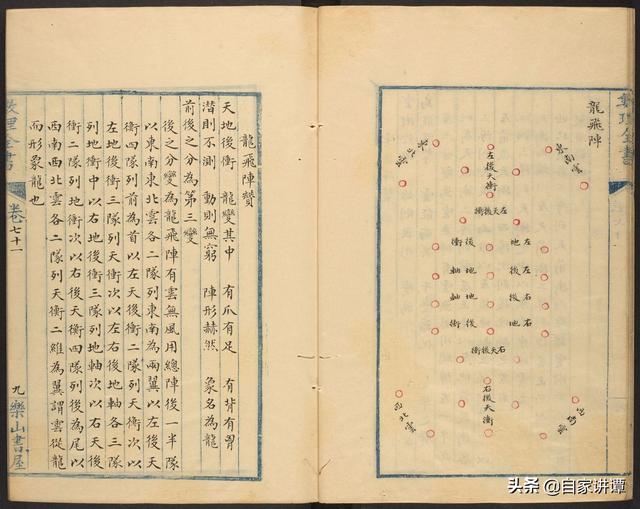 理全書
龍飛陣
東南雲
東北雲
左後天衝
左天後衝
左地後衝
左後地軸
右後地軸
右地後衝
右天後衝
右後天衝
西南雲
西北雲
龍飛陣贊
天地後衝 龍變其中 有爪有足 有背有胷
潛則不測 動則無窮 陣形赫然 象名為龍
前後之分為第三變
後之分變為龍飛陣有雲無風用總陣後一半隊
以東南東北雲各二隊列東南為兩翼以左後天
衝四隊列前為首以左天後衝二隊列天衝次以
左地後衝三隊列天衝次以左右後地軸各三隊
列地衝中以右地後衝三隊列地軸次以右天後
衝二隊列地衝次以右後天衝四隊列後為尾以
西南西北雲各二隊列天衝二維為翼謂雲從龍
而形象龍也
理全書
卷七十一
九
樂山書屋
头条 @自家讲谭